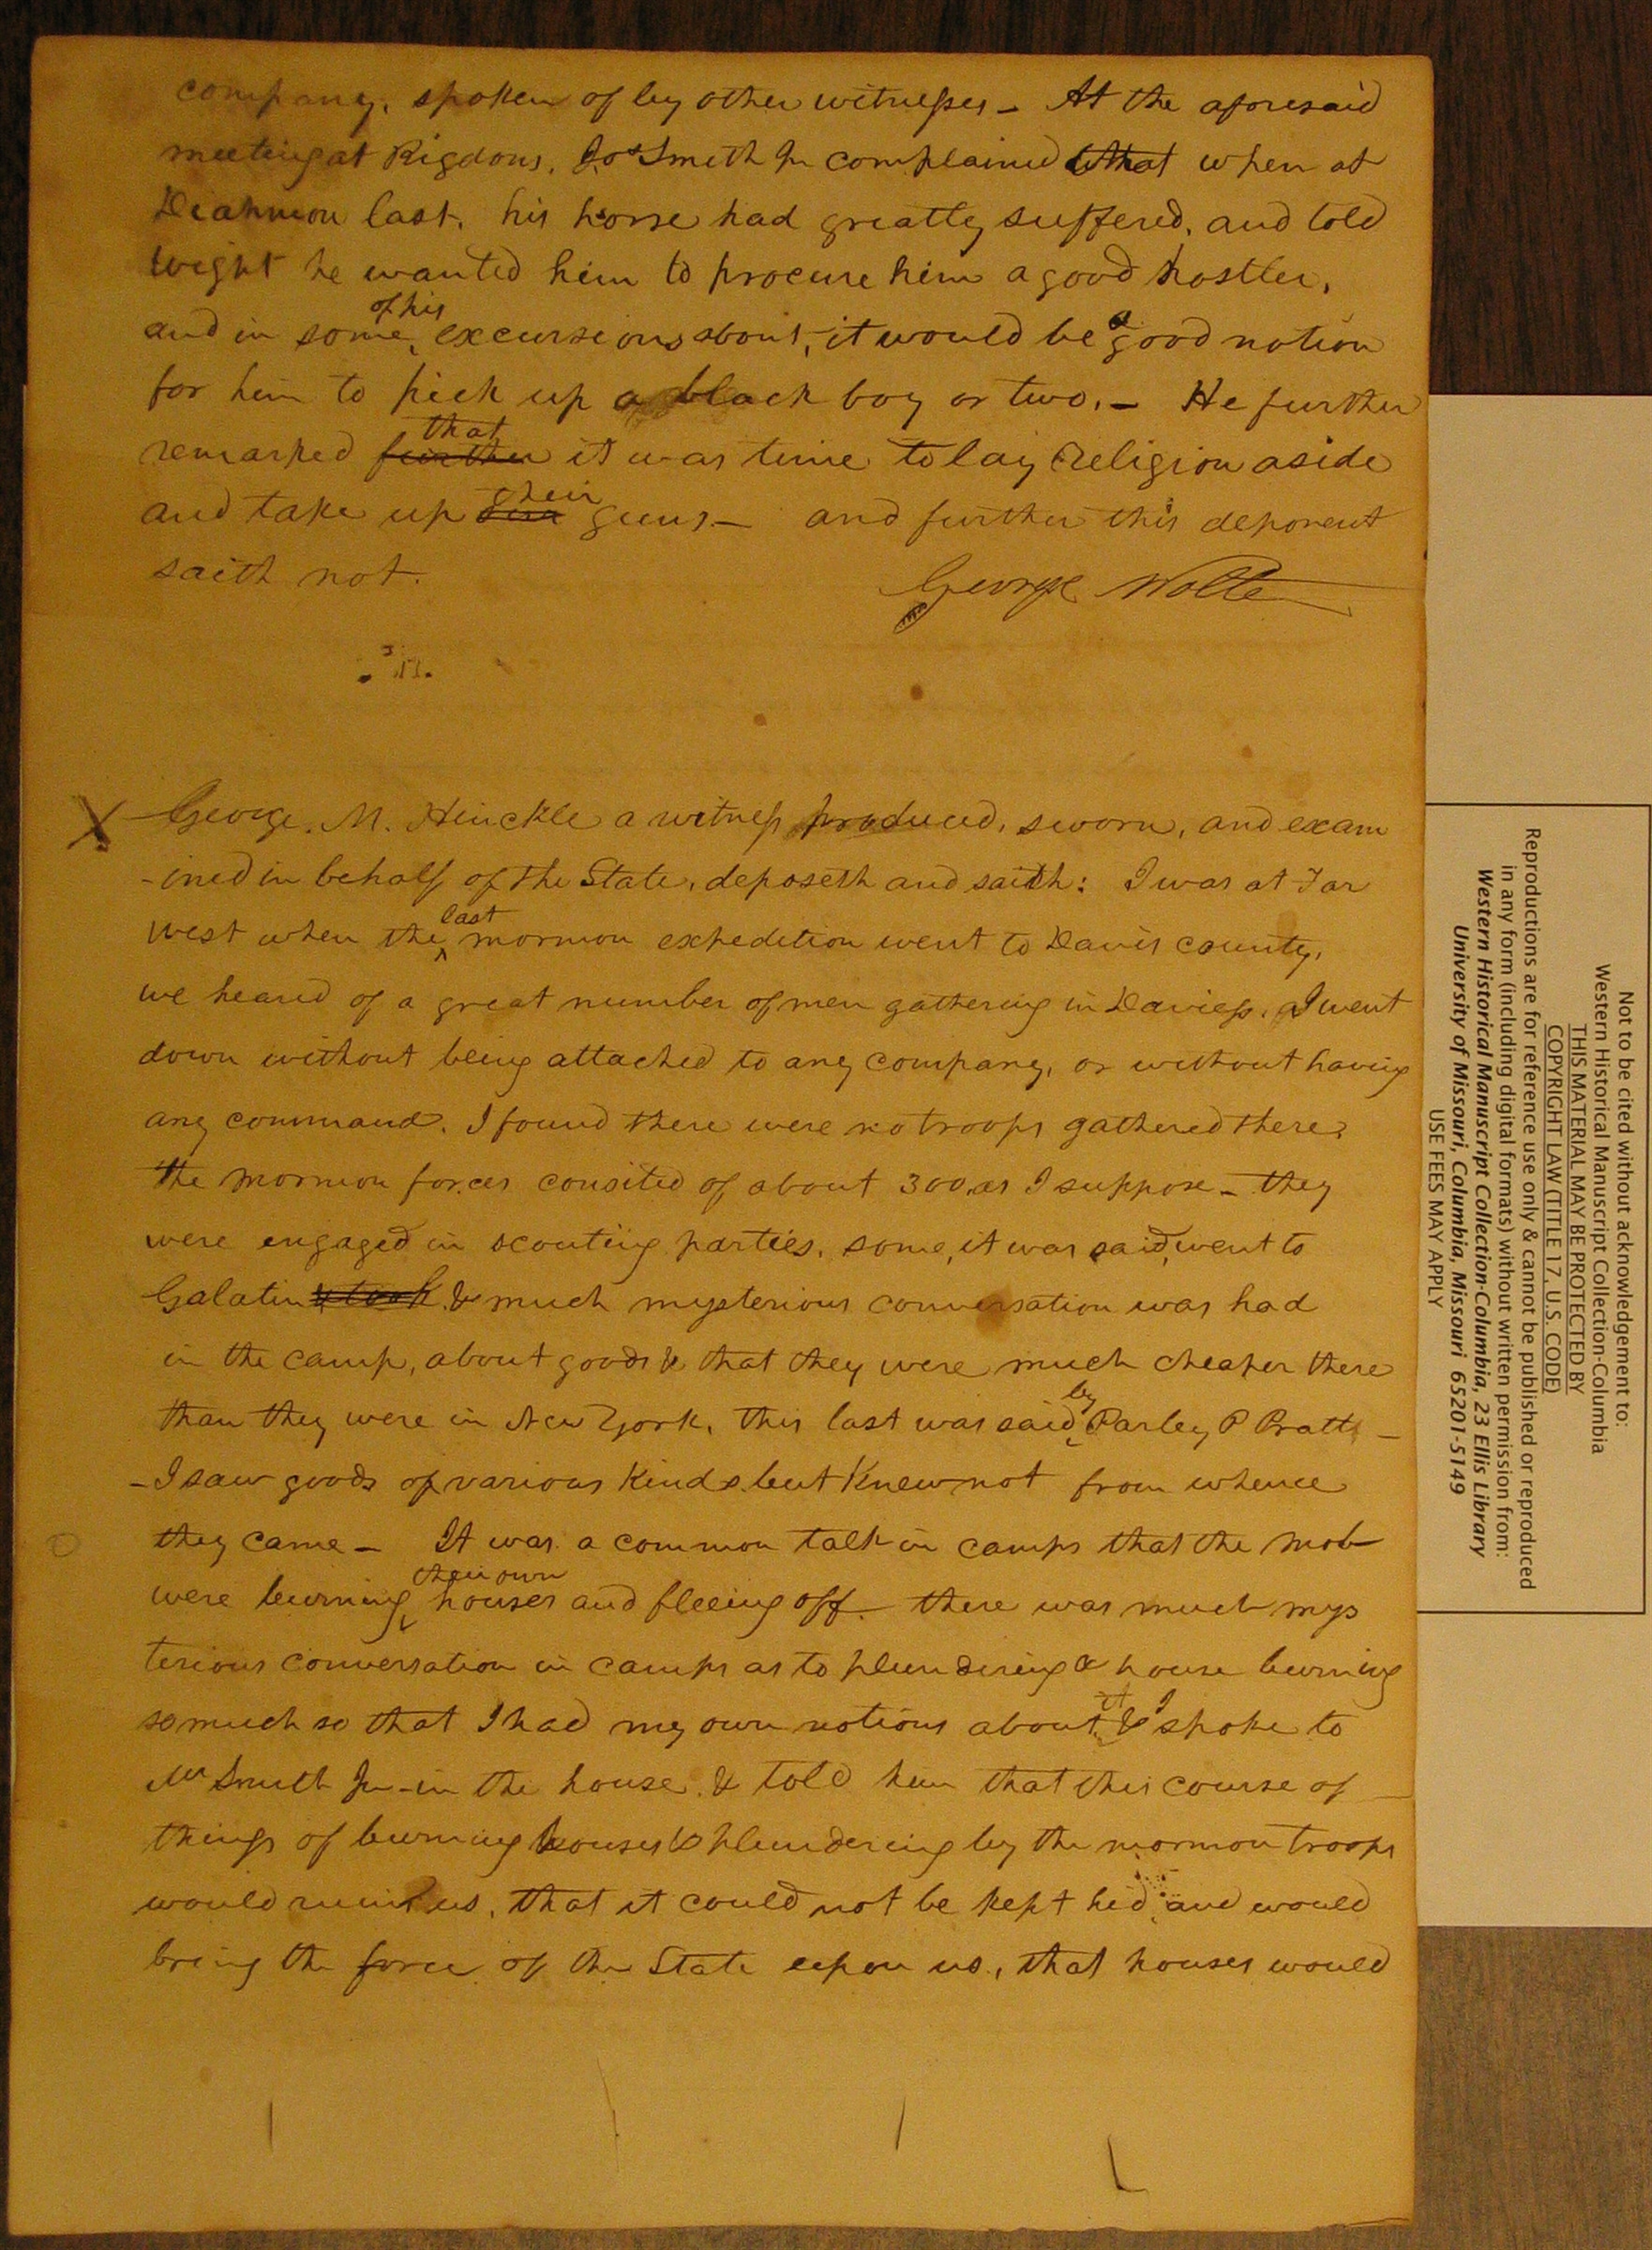 company, spoken of by other witnesses - At the aforesaid
meeting at Rigdons, Jos Smith Jr complained that when at
Diahmon last, his horse had greatly suffered, and told
Wight he wanted him to procure him a good hostler,
and in some of his excursions about, it would be a good notion
for him to pick up a black boy or two. - He further
remarked further that it was time to lay religion aside
and take up their guns - and further this deponent
saith not.
George Walter
George. M. Hinckle a witness produced, sworn, and exam
-ined in behalf of the State, deposeth and saith: I was at Far
West when the last mormon expedition went to Davis county,
we heard of a great number of men gathering in Daviess. I went
down without being attached to any company, or without having
any command. I found there were no troops gathered there.
The mormon forces cousited of about 300, as I suppose - they
were engaged in scouting parties, some, it was said, went to
Galatin & took & much mysterious conversation was had
in the camp, about goods & that they were much cheaper there
than they were in New York, this last was said by Parley P Pratt -
- I saw goods of various kinds but knew not from whence
they came - It was a common talk in camps that the mob
were burning their own houses and fleeing off - there was much mys
terious conversation in camps as to plundering & house burning
so much so that I had my own notions about it & I spoke to
Mr Smith Jr - in the house & told him that this course of
things of burning houses & plundering by the mormon troops
would ruin us, that it could not be kept hid, and would
bring the force of the State upon us, that houses would
Not to be cited without acknowledgement to:
Western Historical Manuscript Collection-Columbia
THIS MATERIAL MAY BE PROTECTED BY
COPYRIGHT LAW (TITLE 17, U.S. CODE)
Reproductions are for reference use only & cannot be published or reproduced
in any form (including digital formats) without written permission from:
Western Historical Manuscript Collection-Columbia, 23 Ellis Library
University of Missouri, Columbia, Missouri 65201-5149
USE FEES MAY APPLY